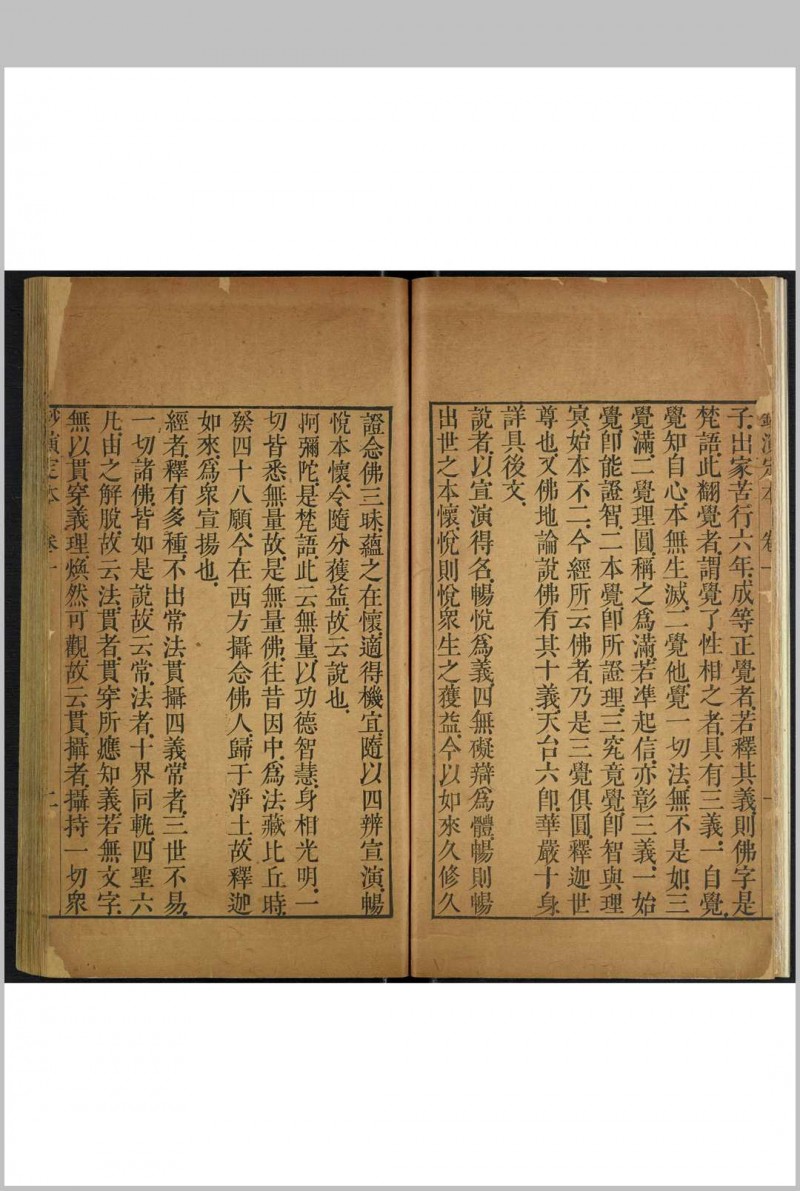 鈔演定本 卷一 一
子出家苦行六年成等正覺者若釋其義則佛字是
梵語此翻覺者謂覺了性相之者具有三義一自覺
覺知自心本無生滅二覺他覺一切法無不是如三
覺滿二覺理圓稱之爲滿若準起信亦彰三義一始
覺卽能證智二本覺卽所證理三究竟覺卽智與理
冥始本不二今經所云佛者乃是三覺俱圓釋迦世
尊也又佛地論說佛有其十義天台六卽華嚴十身
詳具後文
說者以宣演得名暢悅爲義四無礙辯爲體暢則暢
出世之本懷悅則悅衆生之獲益今以如來久修久
證念佛三昧蘊之在懷適得機宜隨以四辨宣演暢
悅本懷令隨分獲益故云說也
阿彌陀是梵語此云無量以功德智慧身相光明一
切皆悉無量故是無量佛往昔因中爲法藏比丘時
發四十八願今在西方攝念佛人歸于淨土故釋迦
如來爲衆宣揚也
經者釋有多種不出常法貫攝四義常者三世不易
一切諸佛皆如是說故云常法者十界同軌四聖六
凡由之解脫故云法貫者貫穿所應知義若無文字
無以貫穿義理煥然可觀故云貫攝者攝持一切衆
鈔演定本 卷一 二